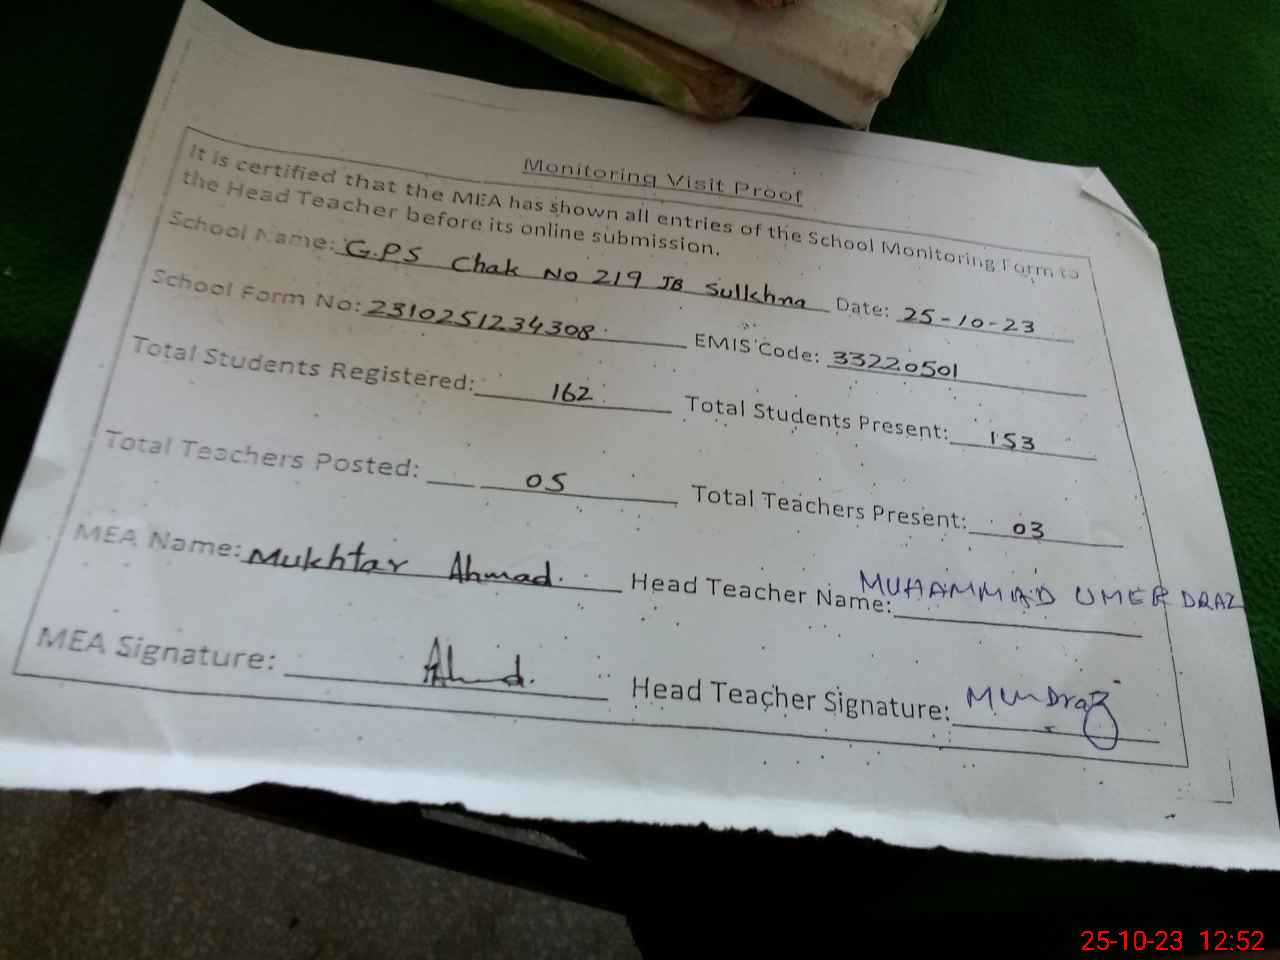 Monitoring Visit Proof
It is certified that the MEA has shown all entries of the School Monitoring Form to
the Head Teacher before its online submission.
School Name: G.P.S Chak No 219 JB Sulkhna Date: 25-10-23
School Form No: 2310251234308 EMIS Code: 33220501
Total Students Registered: 162 Total Students Present: 153
Total Teachers Posted: 05 Total Teachers Present: 03
MEA Name: Mukhtar Ahmad. Head Teacher Name: MUHAMMAD UMER DRAZ
MEA Signature: Ahmd. Head Teacher Signature: MUmDraz
25-10-23 12:52